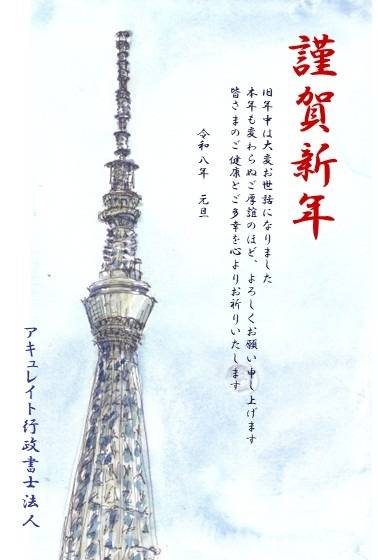 謹賀新年
旧年中は大変お世話になりました
本年も変わらぬご厚誼のほど、よろしくお願い申し上げます
皆さまのご健康とご多幸を心よりお祈りいたします
令和八年 元旦
アキュレイト行政書士法人